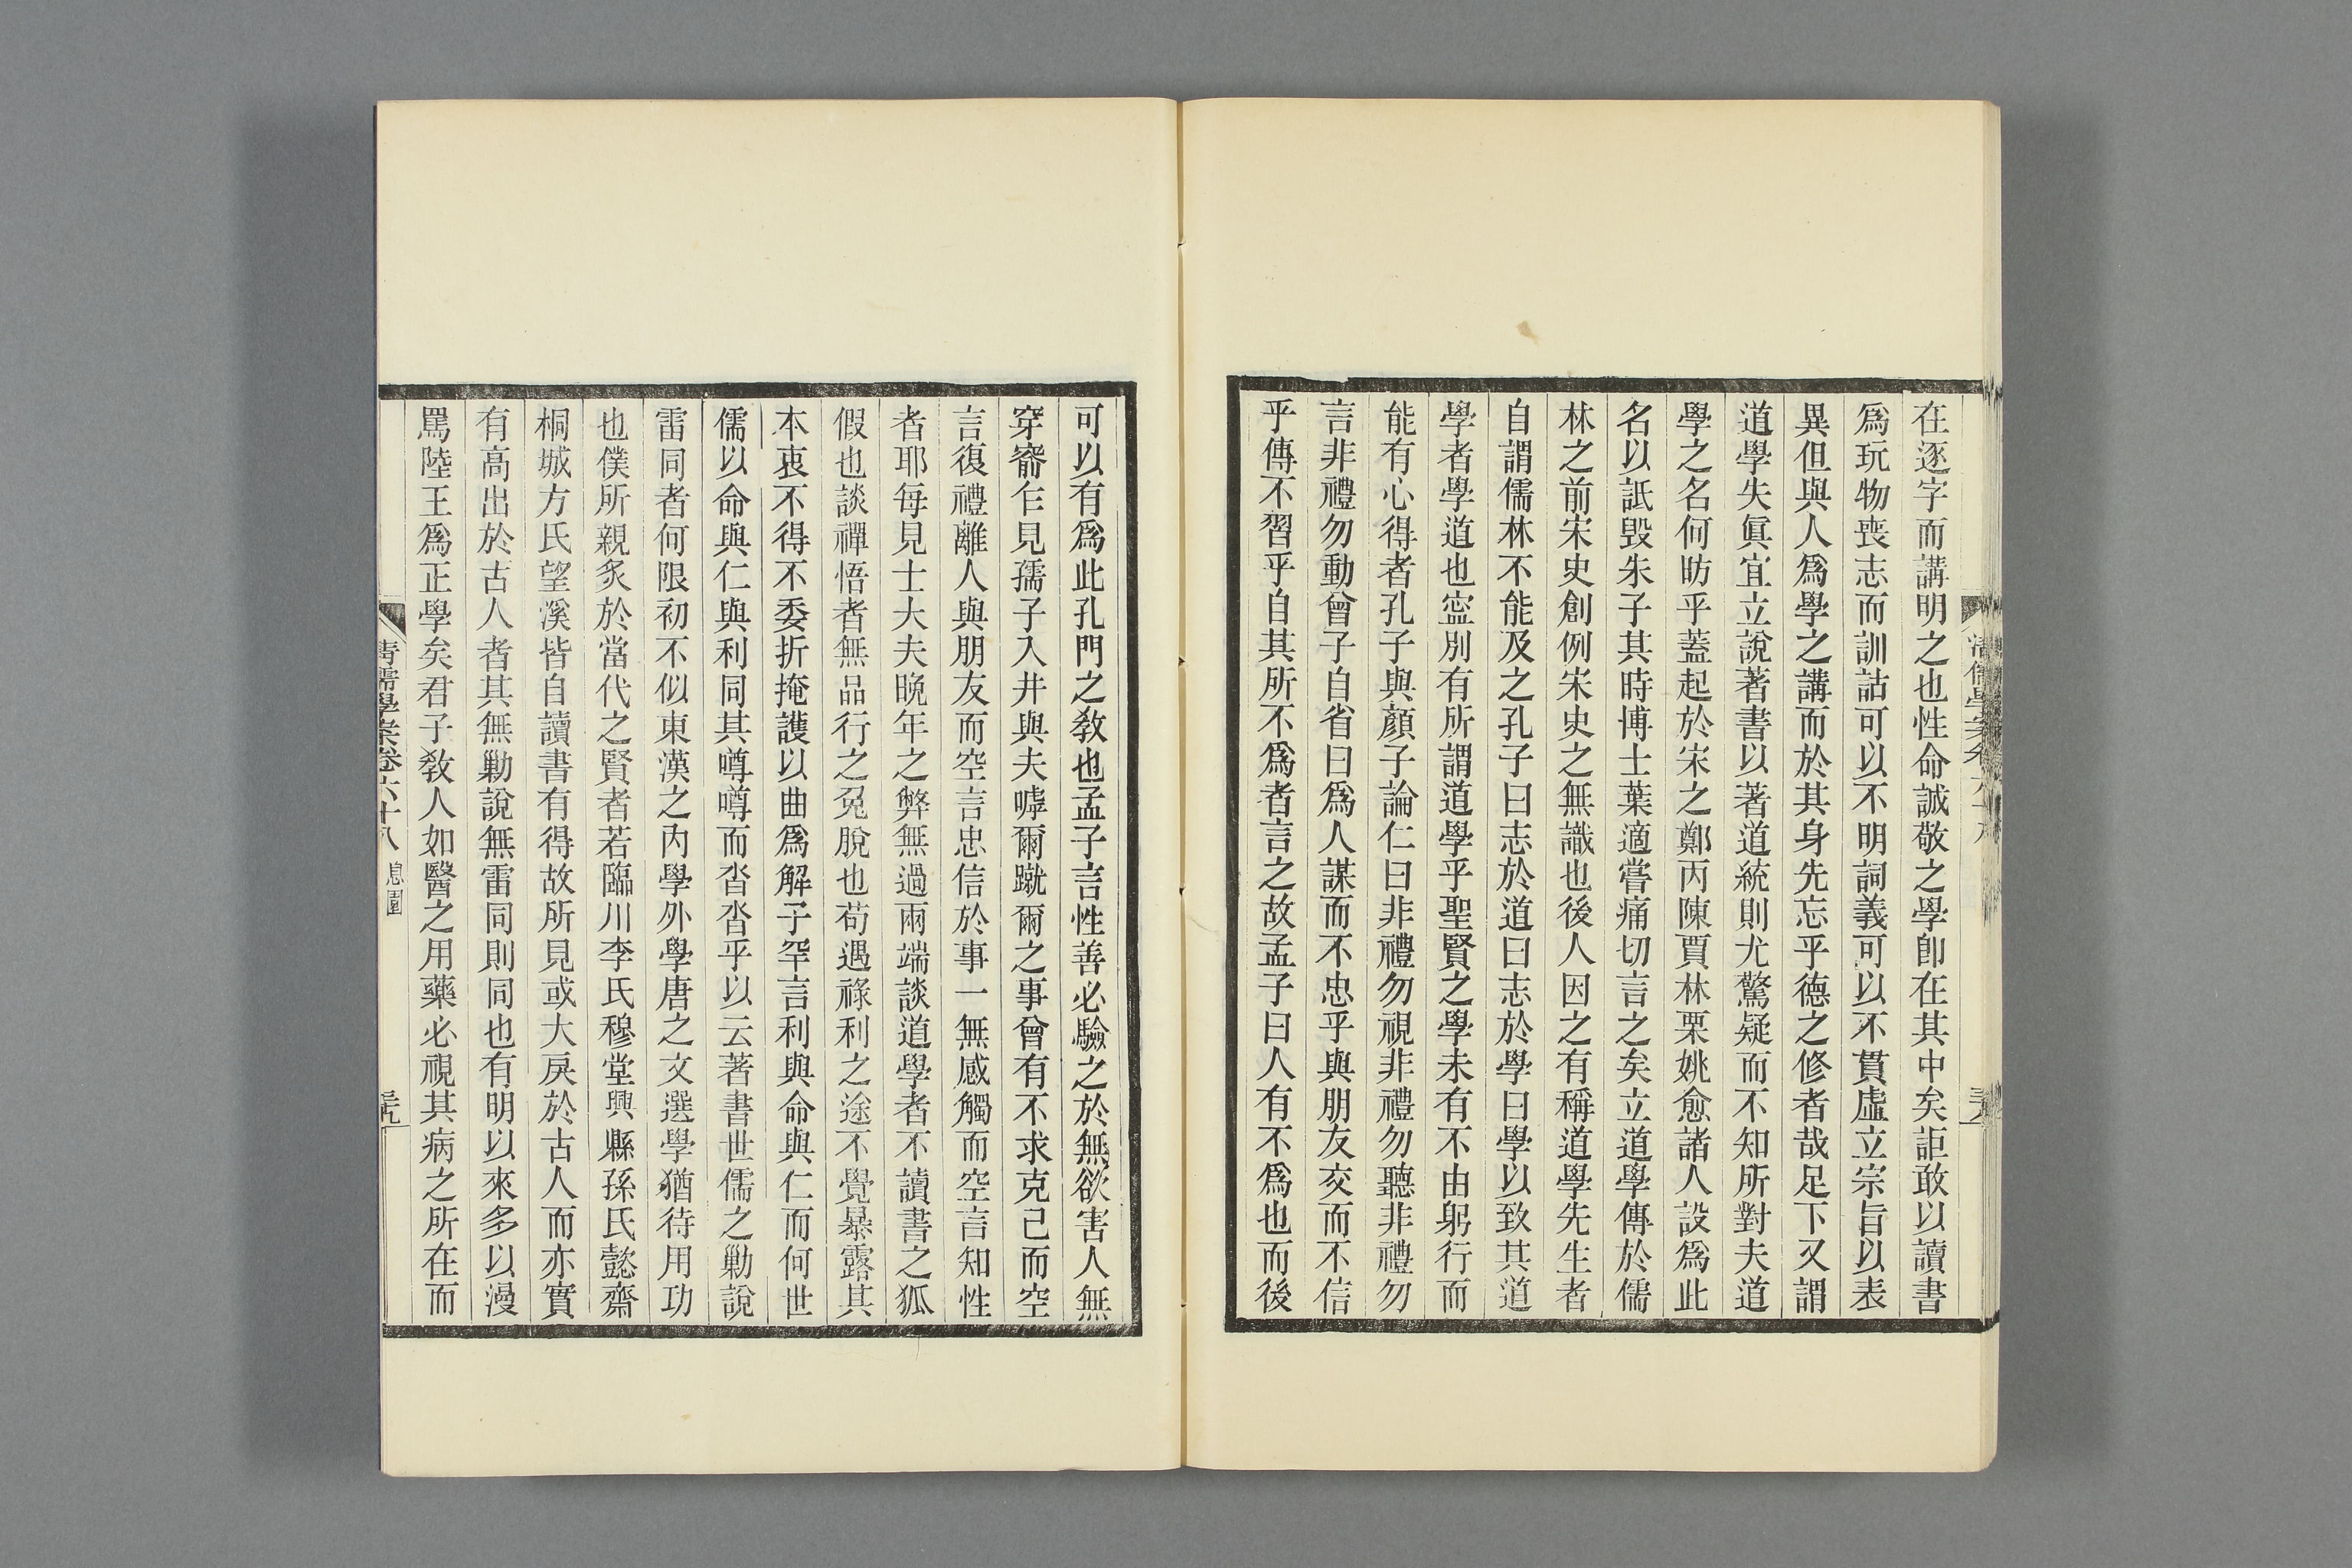 在逐字而講明之也性命誠敬之學卽在其中矣詎敢以讀書
爲玩物喪志而訓詁可以不明詞義可以不貫虛立宗旨以表
異但與人爲學之講而於其身先忘乎德之修者哉足下又謂
道學失眞宜立說著書以著道統則尤驚疑而不知所對夫道
學之名何昉乎蓋起於宋之鄭丙陳賈林栗姚愈諸人設爲此
名以詆毀朱子其時博士葉適嘗痛切言之矣立道學傳於儒
林之前宋史創例宋史之無識也後人因之有稱道學先生者
自謂儒林不能及之孔子曰志於道曰志於學曰學以致其道
學者學道也寍別有所謂道學乎聖賢之學未有不由躬行而
能有心得者孔子與顏子論仁曰非禮勿視非禮勿聽非禮勿
言非禮勿動曾子自省曰爲人謀而不忠乎與朋友交而不信
乎傳不習乎自其所不爲者言之故孟子曰人有不爲也而後
清儒學案卷六十八
可以有爲此孔門之敎也孟子言性善必驗之於無欲害人無
穿窬乍見孺子入井與夫嘑爾蹴爾之事曾有不求克己而空
言復禮離人與朋友而空言忠信於事一無感觸而空言知性
者耶每見士大夫晚年之弊無過兩端談道學者不讀書之狐
假也談禪悟者無品行之兔脫也苟遇祿利之途不覺暴露其
本衷不得不委折掩護以曲爲解子罕言利與命與仁而何世
儒以命與仁與利同其噂噂而沓沓乎以云著書世儒之勦說
雷同者何限初不似東漢之內學外學唐之文選學猶待用功
也僕所親炙於當代之賢者若臨川李氏穆堂興縣孫氏懿齋
桐城方氏望溪皆自讀書有得故所見或大戾於古人而亦實
有高出於古人者其無勦說無雷同則同也有明以來多以漫
罵陸王爲正學矣君子敎人如醫之用藥必視其病之所在而
清儒學案卷六十八 息園 三九